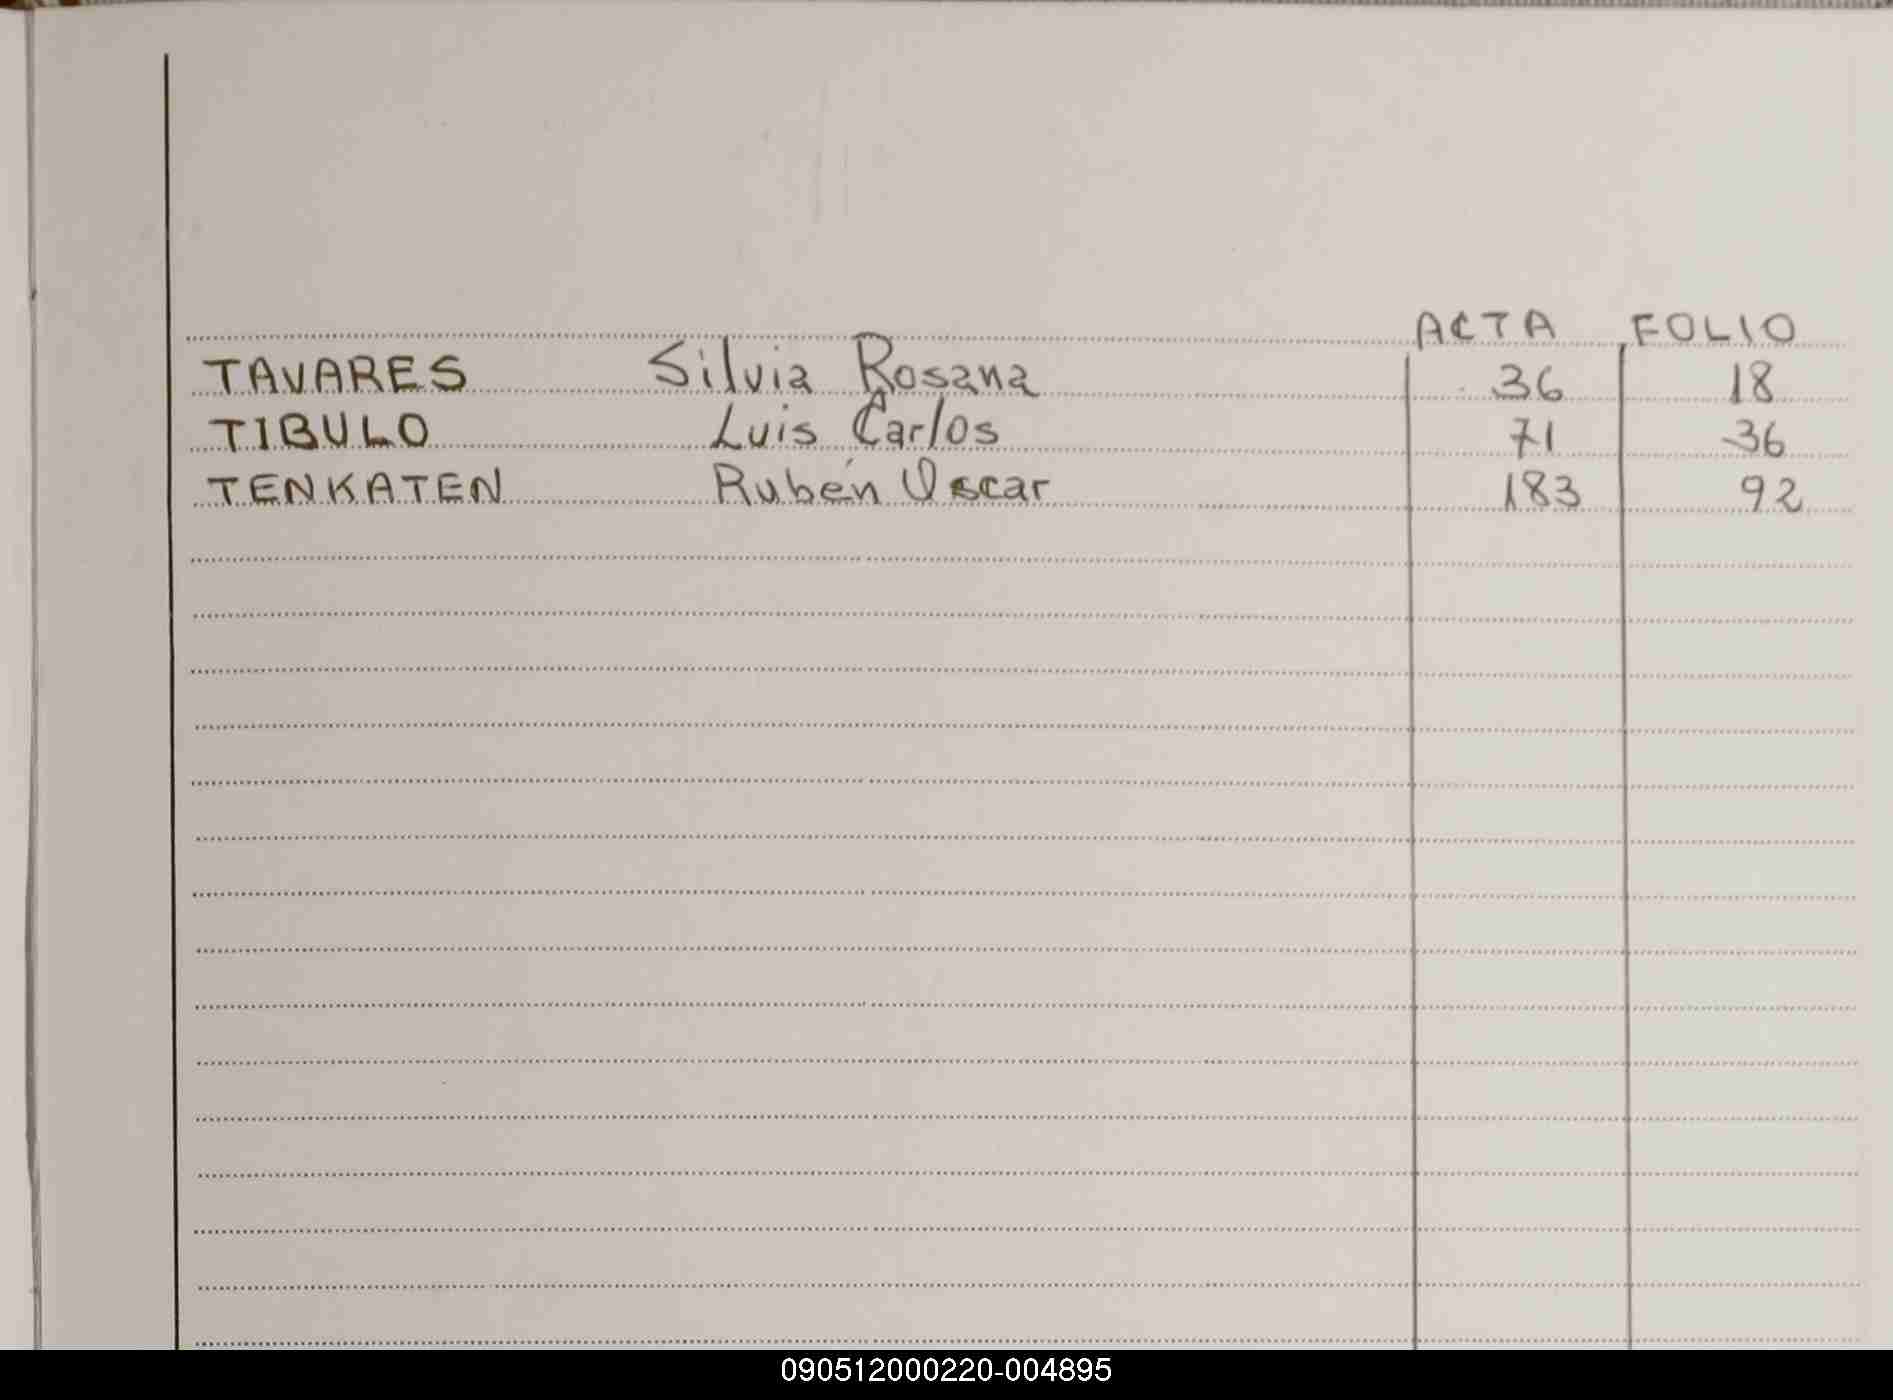 ACTA FOLIO
TAVARES Silvia Rosana 36 18
TIBULO Luis Carlos 71 36
TENKATEN Rubén Oscar 183 92
090512000220-004895